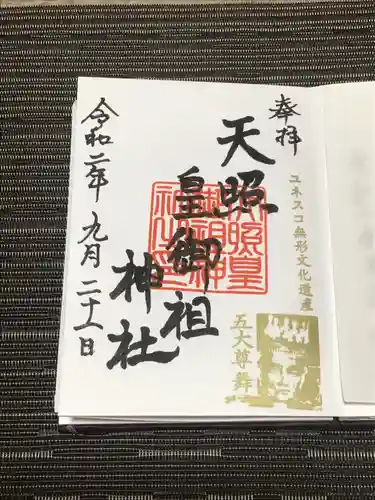 奉拝
ユネスコ無形文化遺産
五大尊舞
天照
皇御祖
神社
令和二年 九月 二十一日